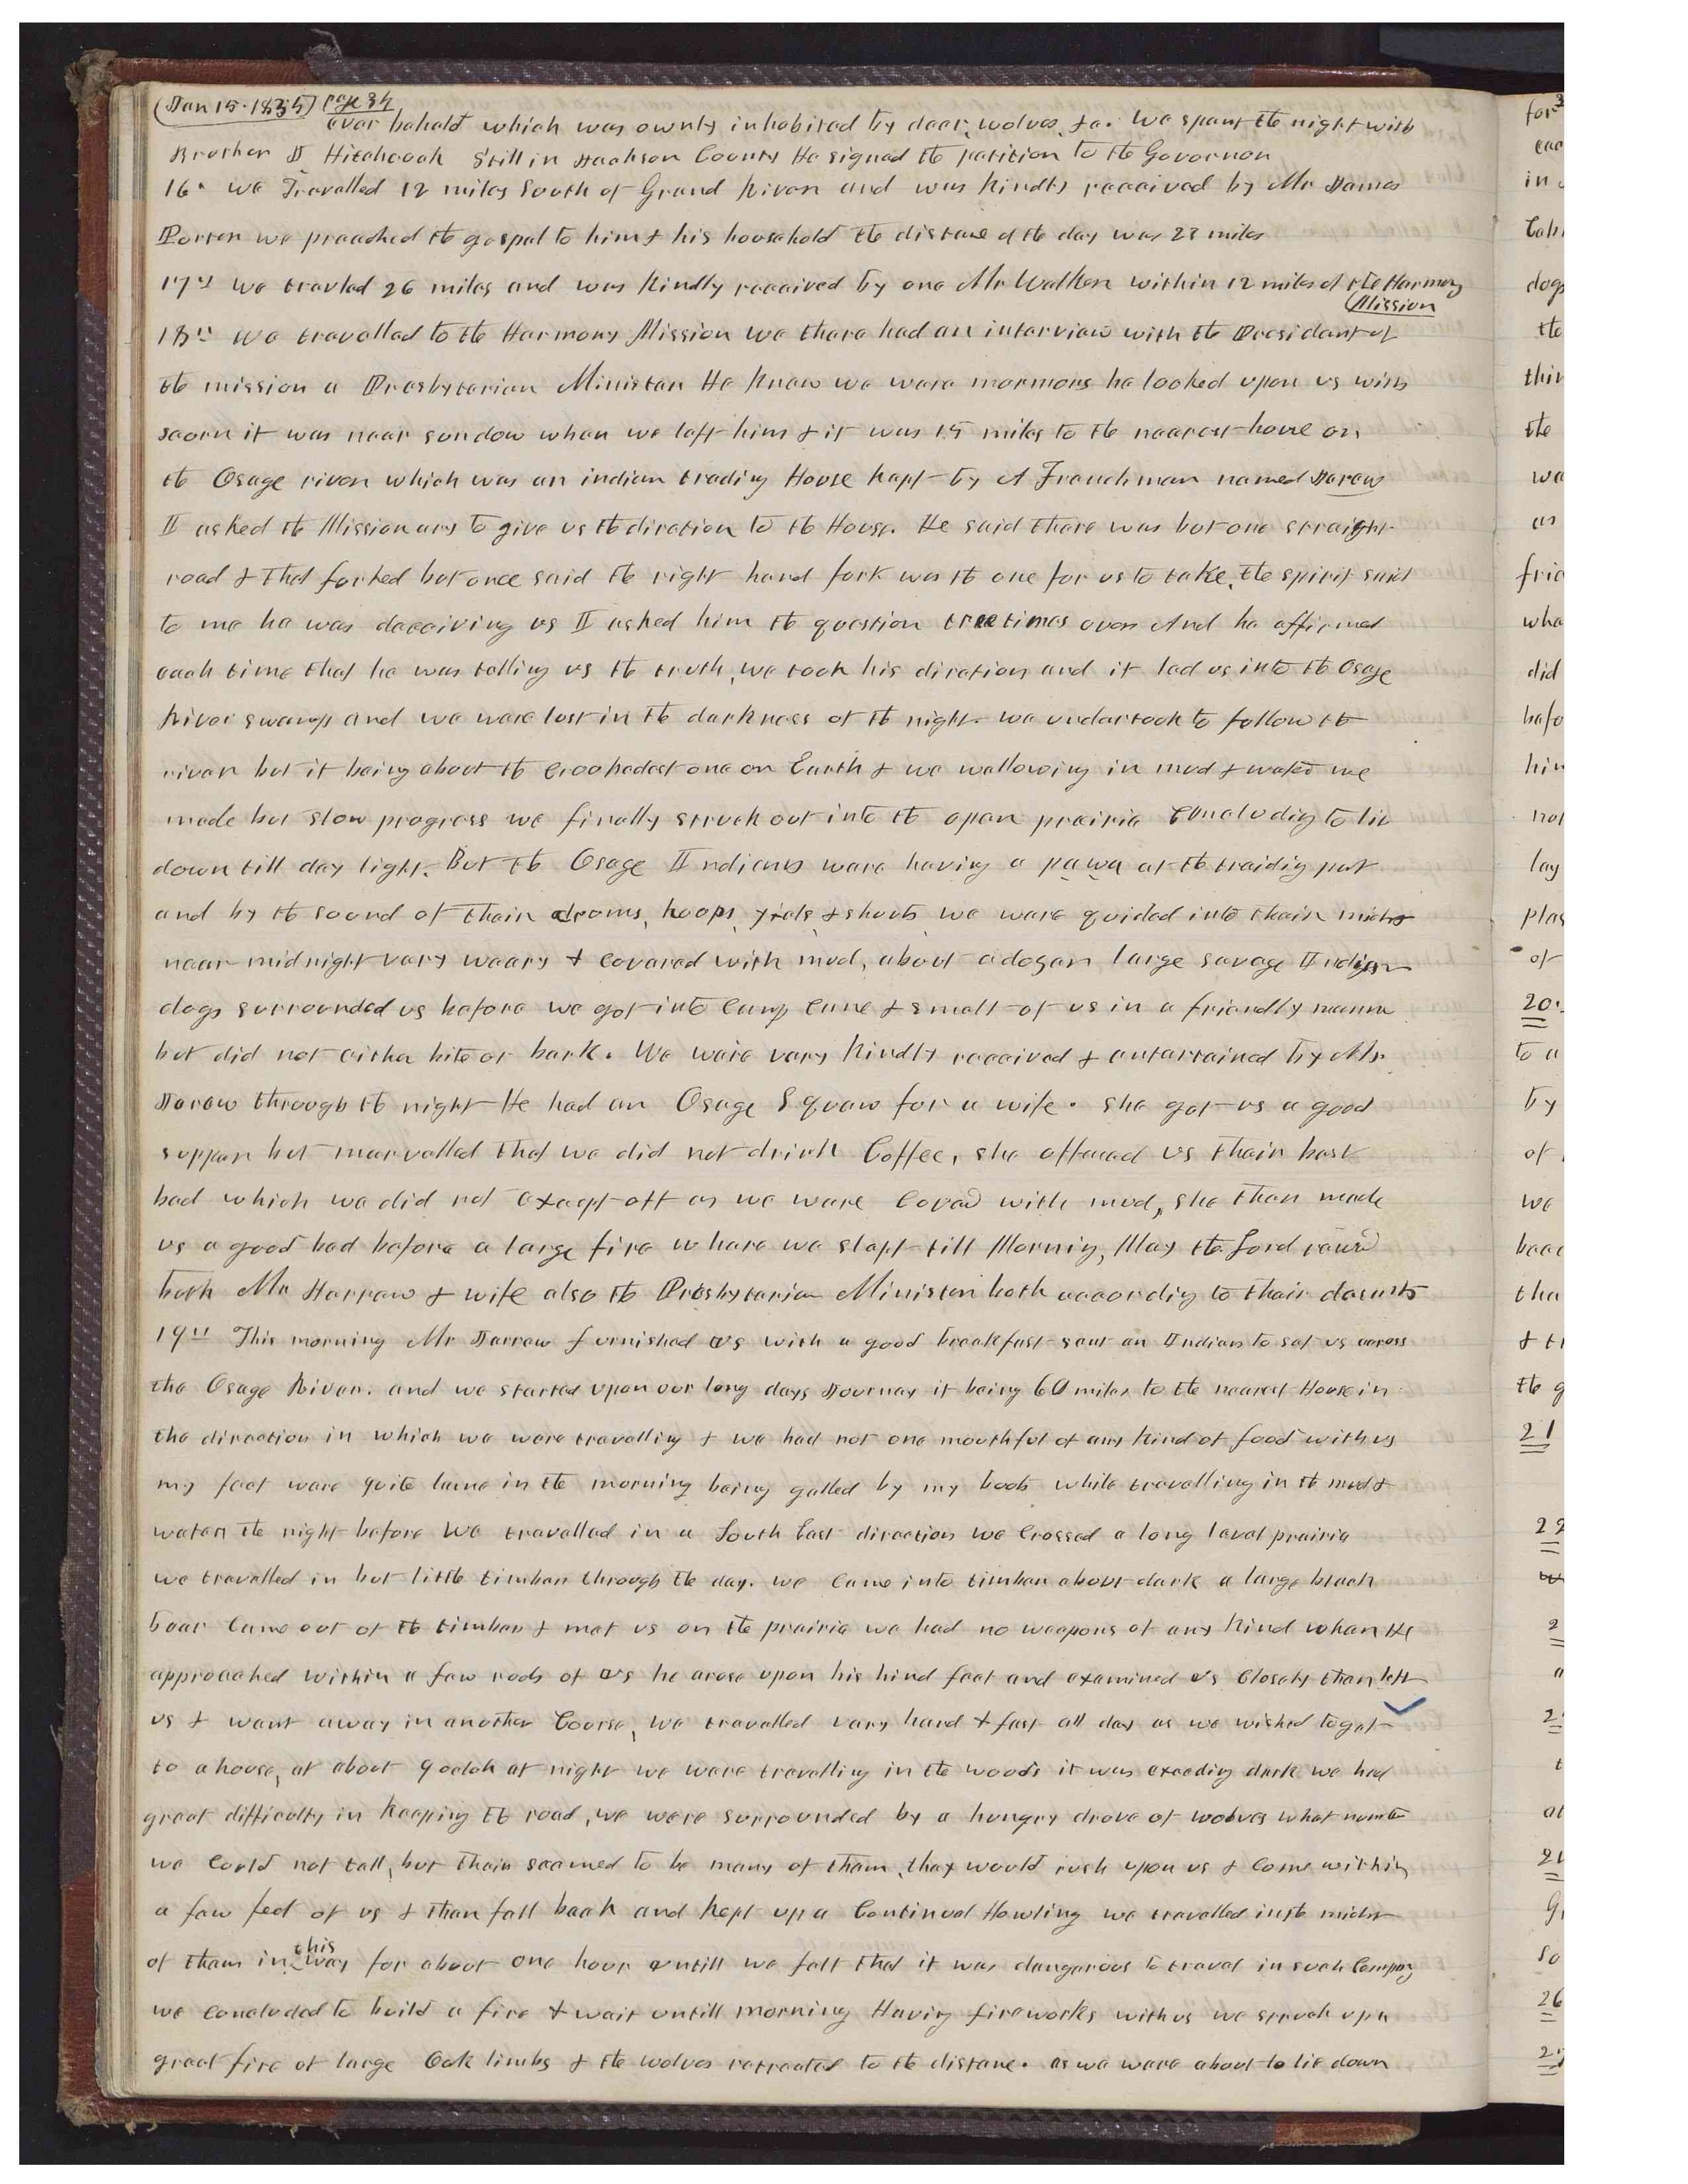 (Jan 15. 1835) Page 34
ever behald which was ownly inhabited by deer, wolves, &c. We spent the night with
Brother J Hitchcock Still in Jackson County He signed the petition to the Governor
16. we Travelled 12 miles South of Grand River and was kindly received by Mr James
Porter we preached the gospel to him & his household the distane of the day was 28 miles
17th we travled 26 miles and was kindly received by one Mr Walker within 12 miles of the Harmony
Mission
18th we travelled to the Harmony Mission we there had an interview with the President of
the mission a Presbyterian Minister He knew we were mormons he looked upon us with
scorn it was near sundow when we left him & it was 15 miles to the nearest house on
the Osage river which was an indian trading House kept by A Frenchman named Jerew
I asked the Missionary to give us the diretion to the House. He said there was but one straight
road & that forked but once said the right hand fork was the one for us to take, the spirit said
to me he was deceiving us I asked him the question tree times over And he affirmed
each time that he was telling us the truth, we took his diretion and it led us into the Osage
River swamp and we were lost in the darkness of the night. we undertook to follow the
river but it being about the Crookedest one on Earth & we wallowing in mud & water we
made but slow progress we finally struck out into the open prairie Concluding to lie
down till day light. But the Osage Indians were having a pawa at the traidig post
and by the sound of their droms, hoops, yiels & shouts we were guided into their midst
near midnight very weary & covered with mud, about a dozen large savage Indian
dogs surrounded us before we got into Camp Came & smelt of us in a friendly mannr
but did not either bite or bark. We were very kindly received & entertained by Mr.
Jerew through the night He had an Osage Squaw for a wife. she got us a good
supper but marvelled that we did not drink Coffee, she offered us their best
bed which we did not except off as we were Coverd with mud, she then made
us a good bed before a large fire where we slept till Mornig, May the Lord rewrd
both Mr Jarraw & wife also the Presbyterian Minister both accordig to their deserts
19th This morning Mr Jarraw furnished us with a good breakfast sent an Indian to set us across
the Osage River. and we started upon our long days Journey it being 60 miles to the nearest House in
the direction in which we were travellig & we had not one mouthful of any kind of food with us
my feet were quite lame in the morning being galled by my boots while travelling in the mud &
water the night before We travelled in a South East direction we Crossed a long level prairie
we travelled in but little timber through the day. we Came into timber about dark a large black
bear Came out of the timber & met us on the prairie we had no weapons of any kind when He
approached within a few rods of us he arose upon his hind feet and examined us Closely then left
us & went away in another Course, we travelled very hard & fast all day as we wished to get
to a house, at about 9 oclok at night we were travelling in the woods it was exceedig dark we had
great difficulty in keeping the road, we were surrounded by a hungry drove of woolves what numbe
we Could not tell, but their seemed to be many of them, they would rush upon us & Come within
a few feet of us & then fall back and kept up a Continual Howling we travelled in the midst
this
of them in way for about one hour untill we felt that it was dangerous to travel in such Compny
we Concluded to build a fire & wait untill morning Havig fireworks with us we struck up a
great fire of large Oak limbs & the wolves retreated to the distane. as we were about to lie down
for
eac
in
Cab
dogs
the
thin
the
we
as
frie
wha
did
befo
him
not
lay
plas
of
20.
to a
by
of
we
beac
tha
& t
the g
21
22
2
a
2
t
at
so
26